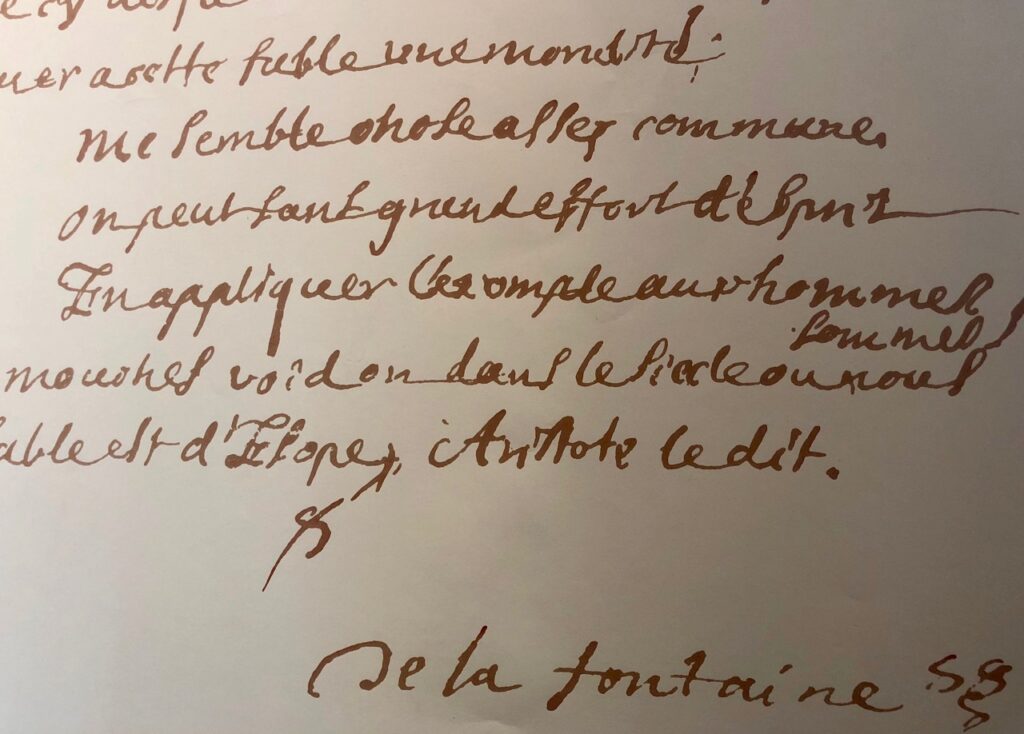 uer a cette fable une moralité:
Me semble chose assez commune,
on peut sans grand effort d'esprit
En appliquer l'exemple aux hommes
sommes
mouches void on dans le siecle ou nous
able est d'Esope, Aristote le dit.
De la fontaine